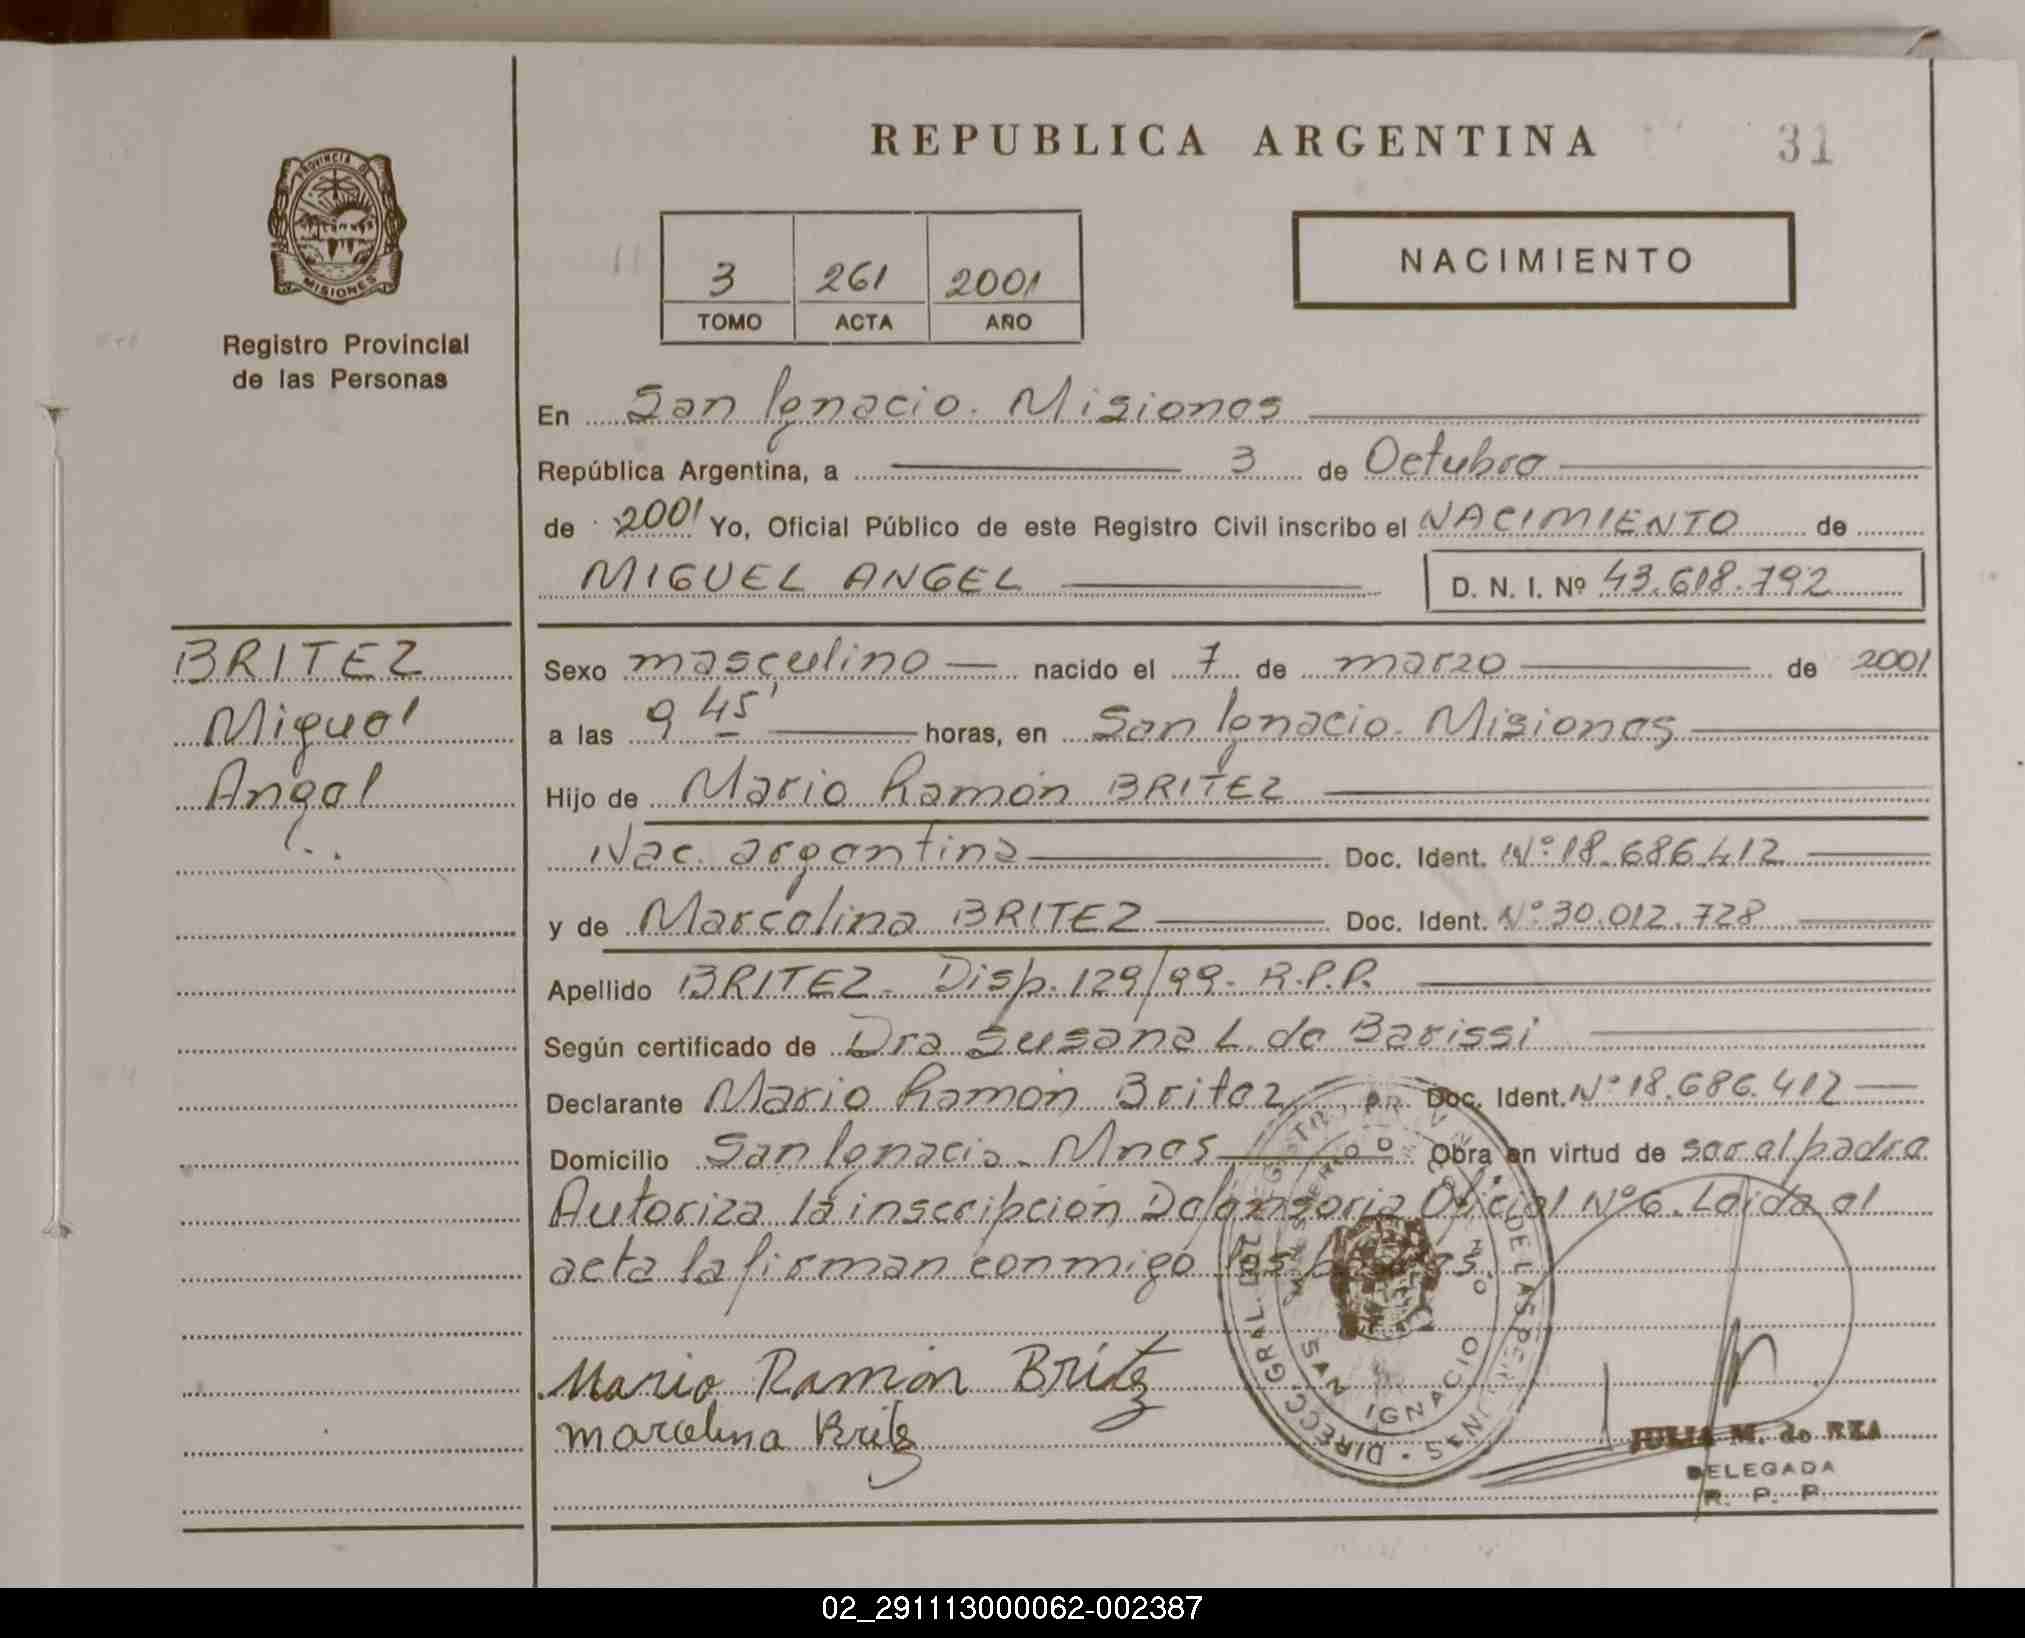 REPUBLICA ARGENTINA
31
PROVINCIA DE
MISIONES
Registro Provincial
de las Personas
3 261 2001
TOMO ACTA AÑO
NACIMIENTO
En San Ignacio. Misiones
República Argentina, a 3 de Octubre
de 2001 Yo, Oficial Público de este Registro Civil inscribo el NACIMIENTO de
MIGUEL ANGEL D. N. I. Nº 43.618.792
BRITEZ
Miguel
Angel
Sexo masculino nacido el 7 de marzo de 2001
a las 9 45' horas, en San Ignacio. Misiones
Hijo de Mario Ramón BRITEZ
Nac. argentina Doc. Ident. Nº 18.686.412
y de Marcelina BRITEZ Doc. Ident. Nº 30.012.728
Apellido BRITEZ. Disp. 129/99. R.P.P.
Según certificado de Dra Susana L. de Barissi
Declarante Mario Ramón Britez Doc. Ident. Nº 18.686.412
Domicilio San Ignacio. Mnes Obra en virtud de ser el padre
Autoriza la inscripción Defensoria Oficial Nº 6. Leida el
acta la firman conmigo los padres.
Mario Ramón Britez
marcelina Britez
SAN IGNACIO
JULIA M. de REA
DELEGADA
R. P. P.
02_291113000062-002387